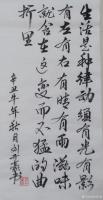 生活是种律动须有光有影
有左有右有晴有雨滋味
就含在这变而不猛的曲
折里
辛丑牛年秋月刘